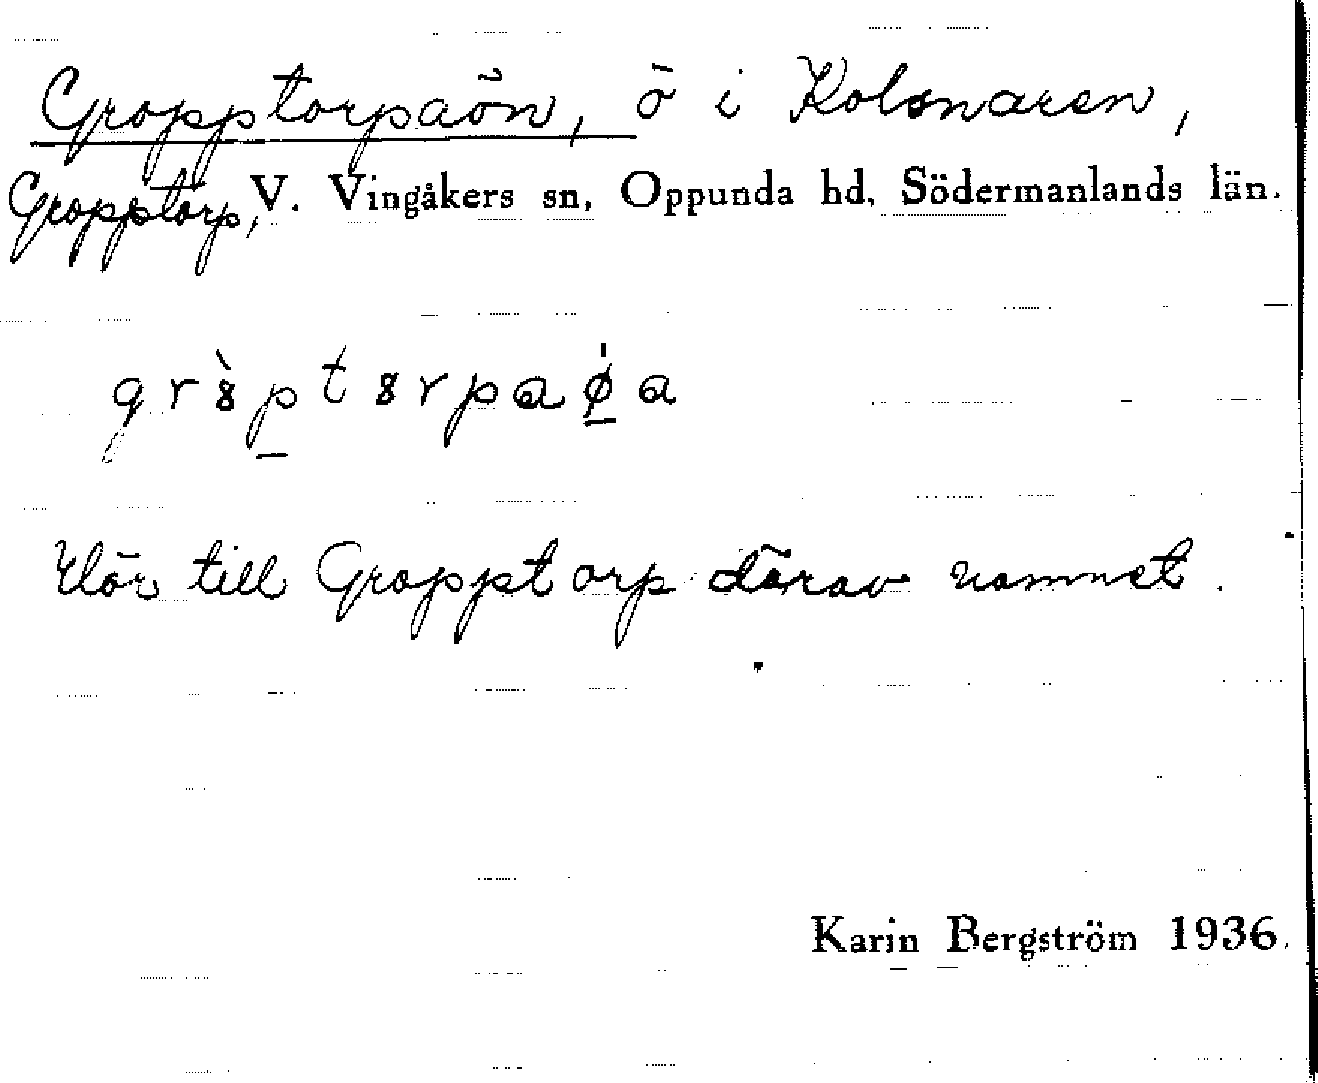 Gropptorpaön, ö i Kolsnaren,
Gropptorp, V. Vingåkers sn, Oppunda hd, Södermanlands län.
till Gropptorp därav namnet.
Karin Bergström 1936.